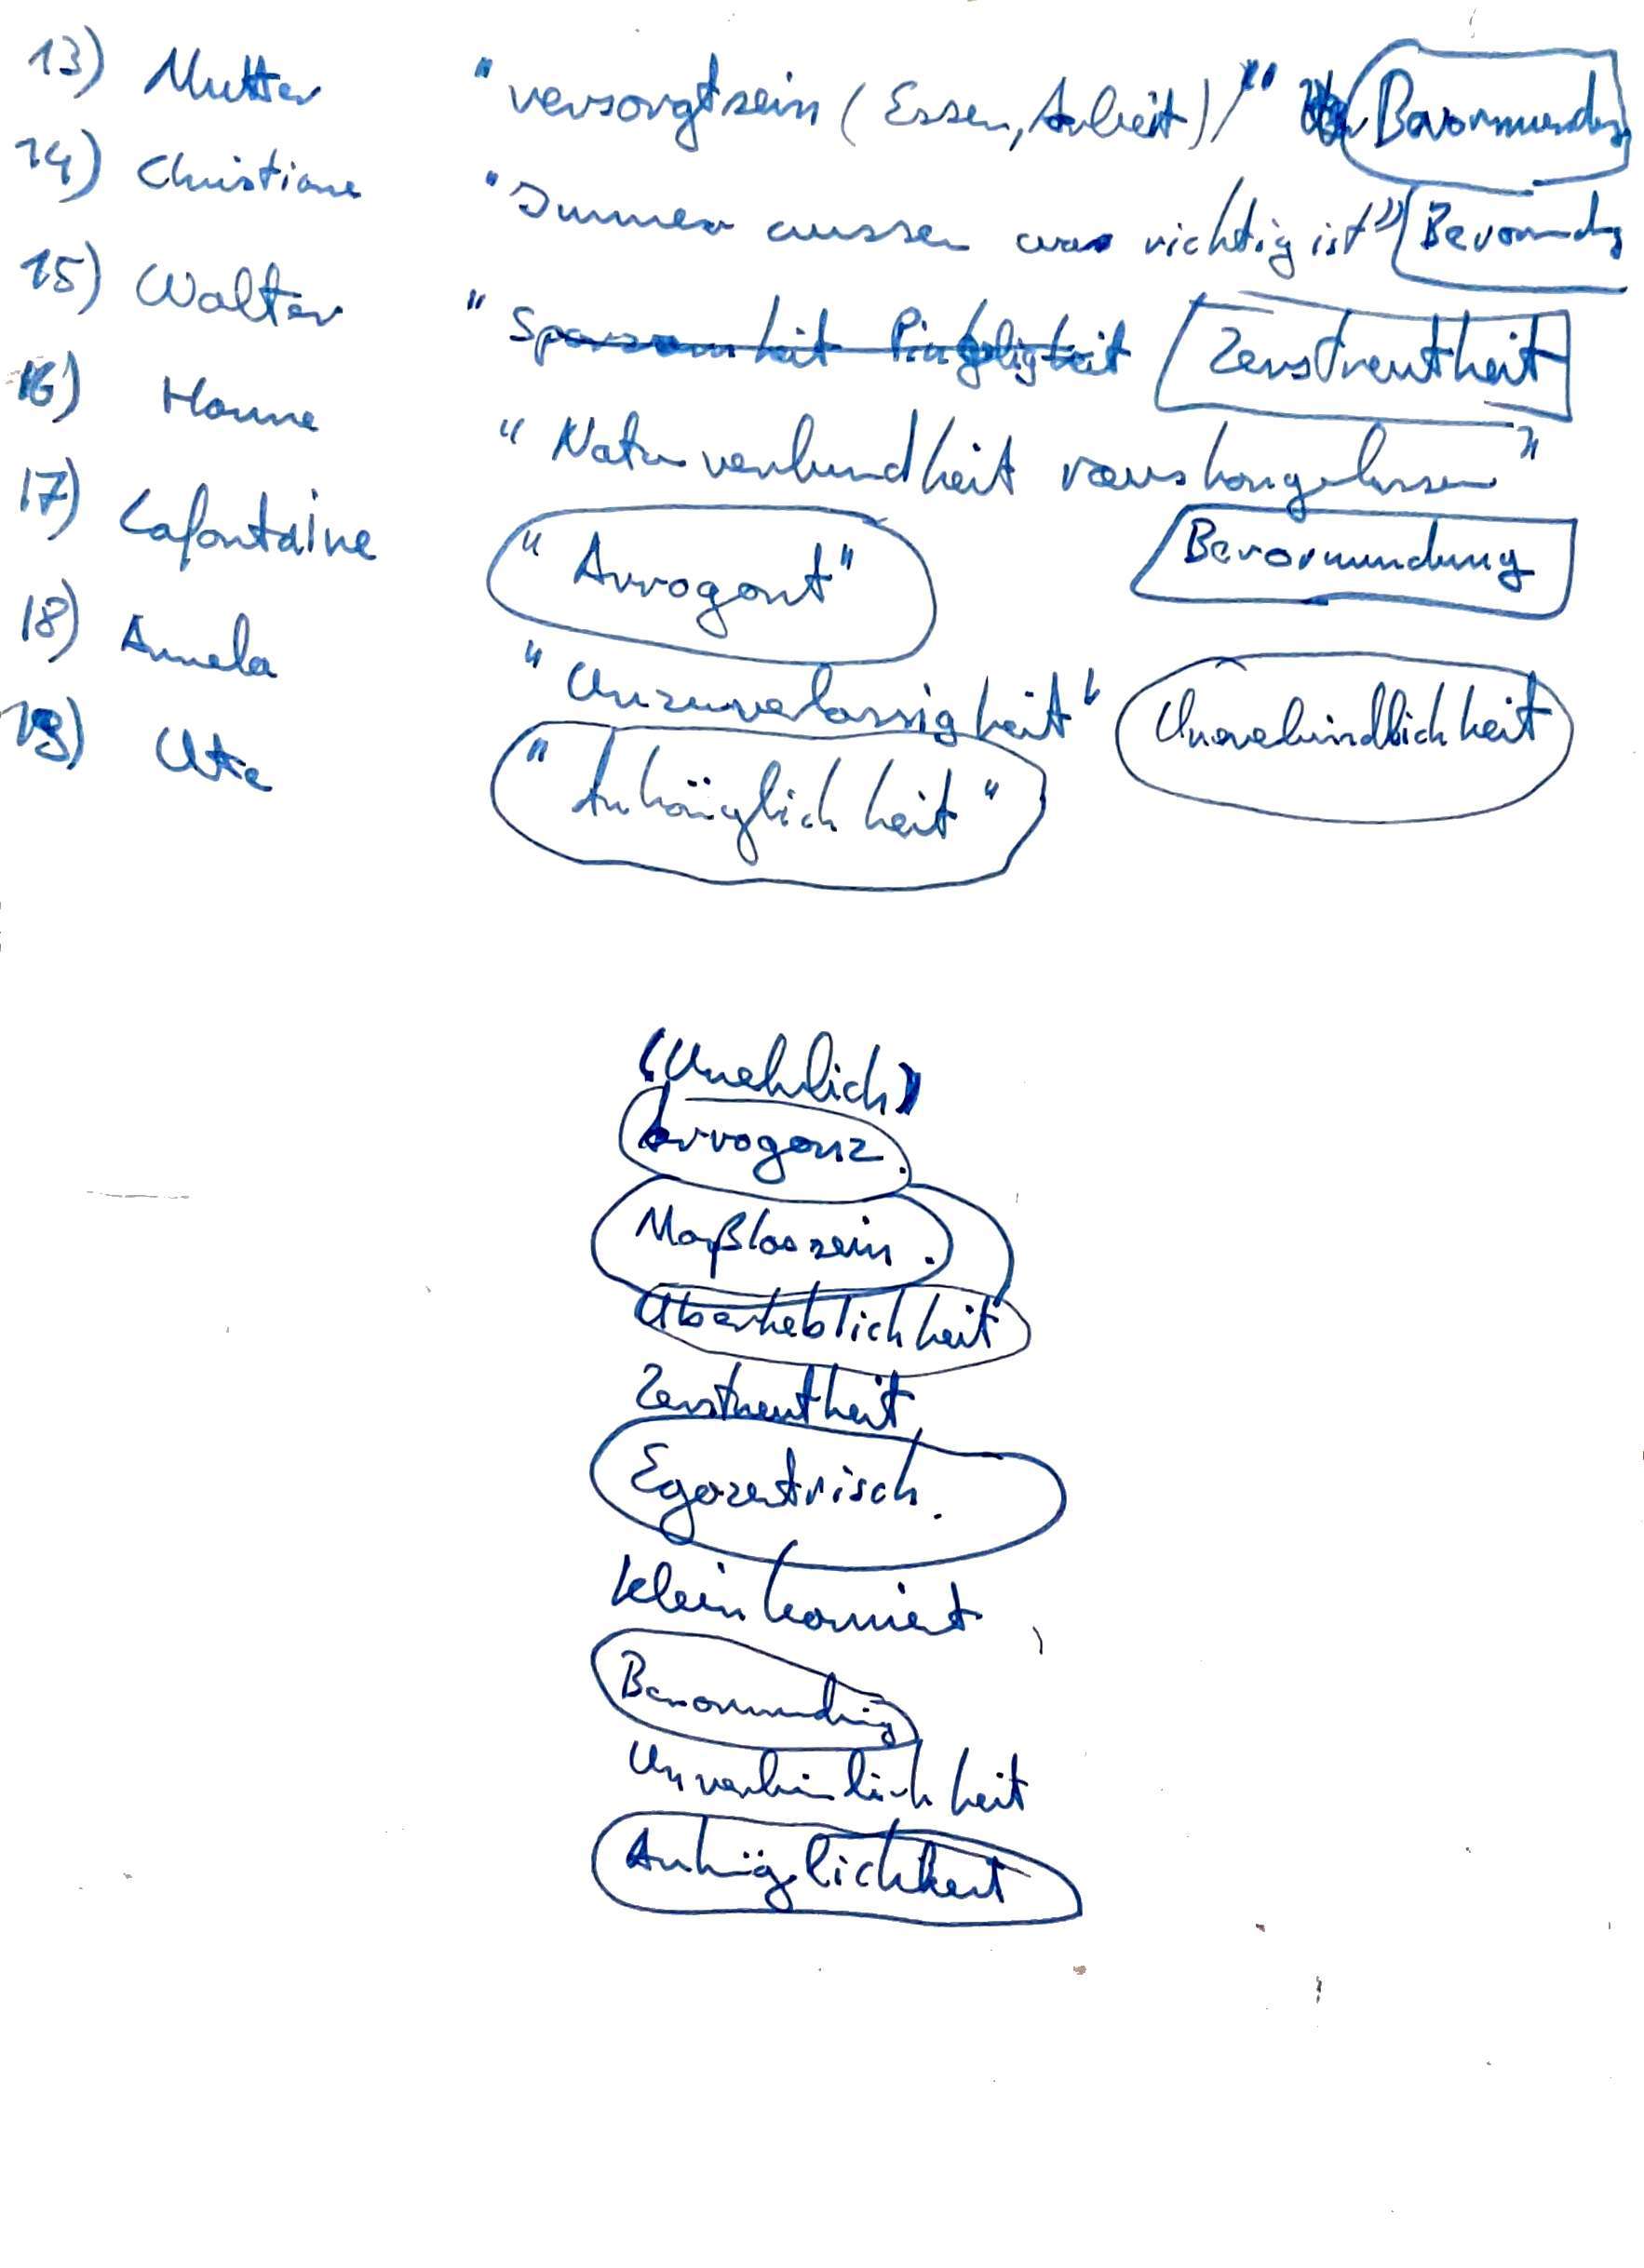 13) Mutter "versorgtsein (Essen, Arbeit)" Bevormundg
14) Christiane "Immer wissen was richtig ist" Bevormundg
15) Walter "Sparsamkeit Pingeligkeit Zerstreutheit
16) Hanne "Naturverbundheit raushängelassen"
17) Lafontaine "Arrogant" Bevormundung
18) "Unzuverlässigkeit" Unverbindlichkeit
19) Ute "Anhänglichkeit"
(Unehrlich)
Arroganz.
Maßlossein.
Überheblichkeit
Zerstreutheit
Egozentrisch.
kleinkariert
Bevormundung
Unverbindlichkeit
Anhänglichkeit